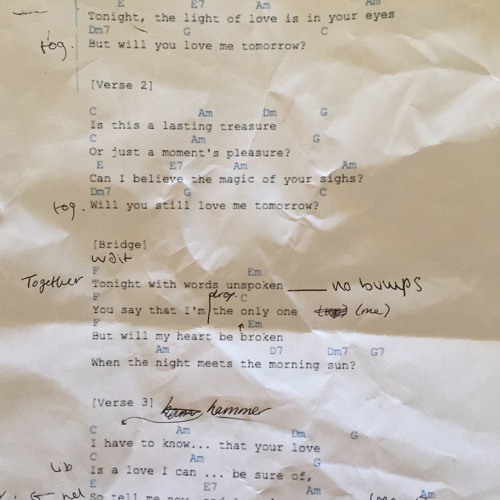 E E7 Am Am
Tonight, the light of love is in your eyes
Dm7 G C
tog. But will you love me tomorrow?
[Verse 2]
C Am Dm G
Is this a lasting treasure
C Am G
Or just a moment's pleasure?
E E7 Am Am
Can I believe the magic of your sighs?
Dm7 G C
tog. Will you still love me tomorrow?
[Bridge]
wait
F Em
Together Tonight with words unspoken no bumps
F drop. C
You say that I'm the only one (me)
F Em
But will my heart be broken
Am D7 Dm7 G7
When the night meets the morning sun?
[Verse 3] hammer
C Am Dm G
I have to know... that your love
C Am G
Is a love I can ... be sure of,
E E7 Am Am
So tell me now